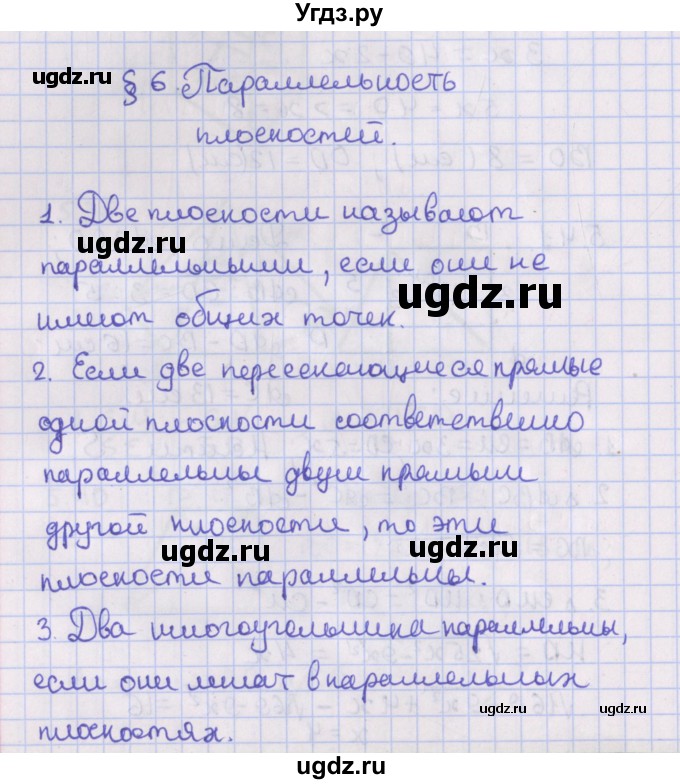 Угдз.ру
ugdz.ru § 6 Параллельность
плоскостей.
ugdz.ru
1. Две плоскости называют
ugdz.ru
параллельными, если они не
ugdz.ru
имеют общих точек.
2. Если две пересекающиеся прямые
ugdz.ru
одной плоскости соответственно
параллельны двум прямым
другой плоскости, то эти
ugdz.ru ugdz.ru
плоскости параллельны.
3. Два многоугольника параллельны,
если они лежат в параллельных
ugdz.ru
плоскостях.
ugdz.ru
ugdz.ru